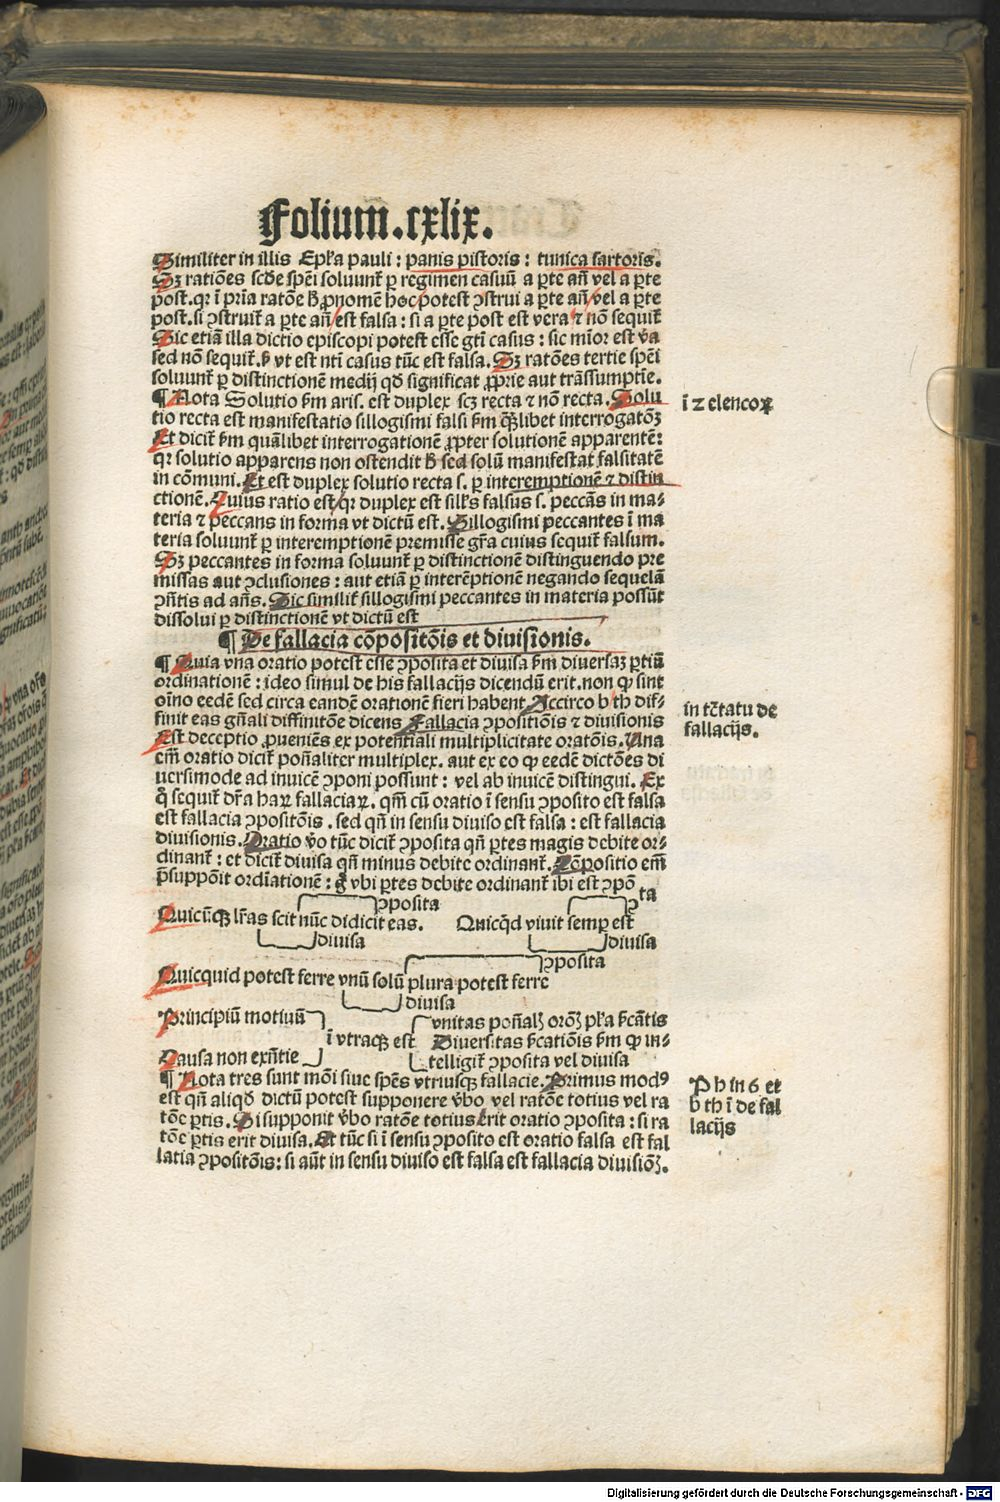 Folium.cxlix.
Similiter in illis Epl̄a pauli : panis pistoris : tunica sartoris.
Sꝫ ratiōes scd̄e spēi soluunt᷑ ꝑ regimen casuū a ꝑte an̄ vel a ꝑte
post. qꝛ ī pria ratōe ħ ꝓnomē hoc potest ꝯstrui a ꝑte an̄ vel a ꝑte
post. si ꝯstruit᷑ a ꝑte an̄ est falsa : si a ꝑte post est vera ⁊ nō sequit᷑
Sic etiā illa dictio episcopi potest esse gt̄i casus : sic mīor est v̄a
sed nō sequit᷑. ꝟ vt est nt̄i casus tūc est falsa. Sꝫ ratōes tertie spēi
soluunt᷑ ꝑ distinctionē medij qd̄ significat ꝓprie aut trāssumptie.
¶ Nota Solutio ẜm aris. est duplex scꝫ recta ⁊ nō recta. Solu
tio recta est manifestatio sillogismi falsi ẜm qūlibet interrogatōꝫ
Et dicit᷑ ẜm quālibet interrogationē ꝓpter solutionē apparentē:
qꝛ solutio apparens non ostendit ħ sed solū manifestat falsitatē
in cōmuni. Et est duplex solutio recta s. ꝑ interemptionē ⁊ distin
ctionē. Cuius ratio est/ qꝛ duplex est sill's falsus s. peccās in ma-
teria ⁊ peccans in forma vt dictū est. Sillogismi peccantes ī ma
teria soluunt᷑ ꝑ interemptionē premisse gr̄a cuius sequit᷑ falsum.
Sꝫ peccantes in forma soluunt᷑ ꝑ distinctionē distinguendo pre
missas aut ꝯclusiones : aut etiā ꝑ interēptionē negando sequelā
ꝯn̄tis ad an̄s. Sic similit᷑ sillogismi peccantes in materia possūt
dissolui ꝑ distinctionē vt dictū est
¶ De fallacia cōpositōis et diuisionis.
¶ Quia vna oratio potest esse ꝯposita et diuisa ẜm diuersaꝫ ꝑtiū
ordinationē : ideo simul de his fallacijs dicendū erit. non ꝙ sint
oīno eedē sed circa eandē orationē fieri habent. Iccirco b' th dif-
finit eas gn̄ali diffinitōe dicens. Fallacia ꝯpositiōis ⁊ diuisionis
Est deceptio ꝓueniēs ex potentiali multiplicitate oratōis. Una
em̄ oratio dicit᷑ pon̄aliter multiplex. aut ex eo ꝙ eedē dictōes di
uersimode ad inuicē ꝯponi possunt : vel ab inuicē distingui. Ex
q̄ sequit᷑ dr̄a haꝝ fallaciaꝝ. qm̄ cū oratio ī sensu ꝯposito est falsa
est fallacia ꝯpositōis . sed qn̄ in sensu diuiso est falsa : est fallacia
diuisionis. Oratio v̄o tūc dicit᷑ ꝯposita qn̄ ꝑtes magis debite or-
dinant᷑ : et dicit᷑ diuisa qn̄ minus debite ordinant᷑. Cōpositio em̄
p̄supponit ordīationē : g̊ vbi ꝑtes debite ordinant᷑ ibi est ꝯpō
ta
ꝯposita ꝯ
Quicūqꝫ lr̄as scit nūc didicit eas. Quicqd̄ viuit semꝑ est
diuisa diuisa
ꝯposita
Quicquid potest ferre vnū solū plura potest ferre
diuisa
Principiū motiuū vnitas pon̄alꝫ oroꝫ pl̄a ẜcātis
ī vtraqꝫ est Diuersitas ẜcatiōis ẜm ꝙ in-
Causa non exn̄tie telligit᷑ ꝯposita vel diuisa
¶ Nota tres sunt mōi siue spēs vtriusqꝫ fallacie. Primus modꝰ
est qn̄ aliqd̄ dictū potest supponere v̄bo vel ratōe totius vel ra
tōe ꝑtis. Si supponit v̄bo ratōe totius erit oratio ꝯposita : si ra
tōe ꝑtis erit diuisa. Et tūc si ī sensu ꝯposito est oratio falsa est fal
latia ꝯpositōis : si aūt in sensu diuiso est falsa est fallacia diuisiōꝫ.
ī 2 elencoꝝ
in tc̄tatu de
fallacijs.
Ph in 6 et
b th ī de fal
lacijs
Digitalisierung gefördert durch die Deutsche Forschungsgemeinschaft - DFG